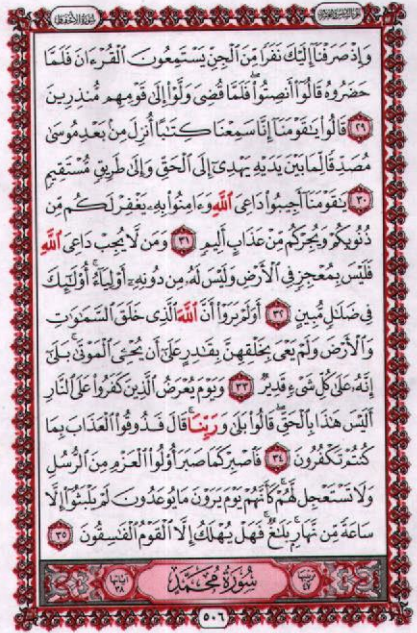 سُورَةُ الأَحْقَافِ
وَإِذْ صَرَفْنَآ إِلَيْكَ نَفَرًا مِّنَ ٱلْجِنِّ يَسْتَمِعُونَ ٱلْقُرْءَانَ فَلَمَّا
حَضَرُوهُ قَالُوٓا۟ أَنصِتُوا۟ ۖ فَلَمَّا قُضِىَ وَلَّوْا۟ إِلَىٰ قَوْمِهِم مُّنذِرِينَ
٢٩ قَالُوا۟ يَـٰقَوْمَنَآ إِنَّا سَمِعْنَا كِتَـٰبًا أُنزِلَ مِنۢ بَعْدِ مُوسَىٰ
مُصَدِّقًا لِّمَا بَيْنَ يَدَيْهِ يَهْدِىٓ إِلَى ٱلْحَقِّ وَإِلَىٰ طَرِيقٍ مُّسْتَقِيمٍ
٣٠ يَـٰقَوْمَنَآ أَجِيبُوا۟ دَاعِىَ ٱللَّهِ وَءَامِنُوا۟ بِهِۦ يَغْفِرْ لَكُم مِّن
ذُنُوبِكُمْ وَيُجِرْكُم مِّنْ عَذَابٍ أَلِيمٍ ٣١ وَمَن لَّا يُجِبْ دَاعِىَ ٱللَّهِ
فَلَيْسَ بِمُعْجِزٍ فِى ٱلْأَرْضِ وَلَيْسَ لَهُۥ مِن دُونِهِۦٓ أَوْلِيَآءُ ۚ أُو۟لَـٰٓئِكَ
فِى ضَلَـٰلٍ مُّبِينٍ ٣٢ أَوَلَمْ يَرَوْا۟ أَنَّ ٱللَّهَ ٱلَّذِى خَلَقَ ٱلسَّمَـٰوَٰتِ
وَٱلْأَرْضَ وَلَمْ يَعْىَ بِخَلْقِهِنَّ بِقَـٰدِرٍ عَلَىٰٓ أَن يُحْـِۧىَ ٱلْمَوْتَىٰ ۚ بَلَىٰٓ
إِنَّهُۥ عَلَىٰ كُلِّ شَىْءٍ قَدِيرٌ ٣٣ وَيَوْمَ يُعْرَضُ ٱلَّذِينَ كَفَرُوا۟ عَلَى ٱلنَّارِ
أَلَيْسَ هَـٰذَا بِٱلْحَقِّ ۖ قَالُوا۟ بَلَىٰ وَرَبِّنَا ۚ قَالَ فَذُوقُوا۟ ٱلْعَذَابَ بِمَا
كُنتُمْ تَكْفُرُونَ ٣٤ فَٱصْبِرْ كَمَا صَبَرَ أُو۟لُوا۟ ٱلْعَزْمِ مِنَ ٱلرُّسُلِ
وَلَا تَسْتَعْجِل لَّهُمْ ۚ كَأَنَّهُمْ يَوْمَ يَرَوْنَ مَا يُوعَدُونَ لَمْ يَلْبَثُوٓا۟ إِلَّا
سَاعَةً مِّن نَّهَارٍۭ ۚ بَلَـٰغٌ ۚ فَهَلْ يُهْلَكُ إِلَّا ٱلْقَوْمُ ٱلْفَـٰسِقُونَ ٣٥
سُورَةُ مُحَمَّدٍ
آيَاتُهَا ٣٨
٥٠٦